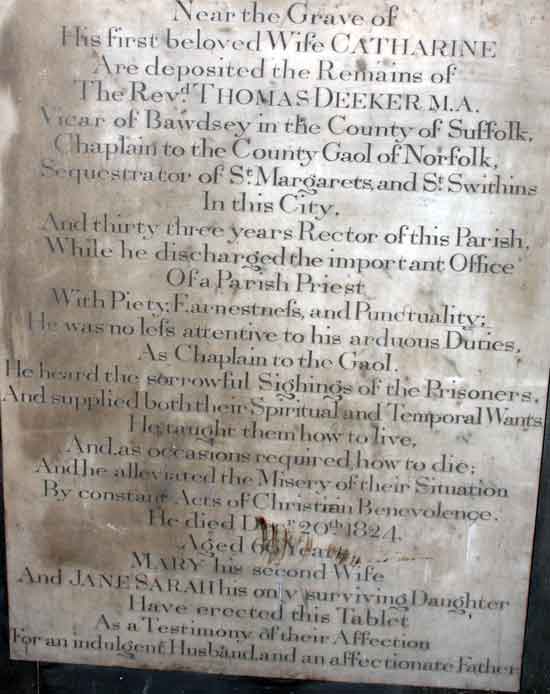 Near the Grave of
His first beloved Wife CATHARINE
Are deposited the Remains of
The Revd. THOMAS DEEKER M.A.
Vicar of Bawdsey in the County of Suffolk,
Chaplain to the County Gaol of Norfolk,
Sequestrator of St. Margarets, and St. Swithins
In this City,
And thirty three years Rector of this Parish,
While he discharged the important Office
Of a Parish Priest
With Piety; Earnestneſs, and Punctuality;
He was no leſs attentive to his arduous Duties,
As Chaplain to the Gaol.
He heard the sorrowful Sighings of the Prisoners,
And supplied both their Spiritual and Temporal Wants
He taught them how to live,
And, as occasions required, how to die;
And he alleviated the Misery of their Situation
By constant Acts of Christian Benevolence.
He died 20th 1824,
Aged Years
MARY his second Wife
And JANE SARAH his only surviving Daughter
Have erected this Tablet
As a Testimony of their Affection
For an indulgent Husband, and an affectionate Father